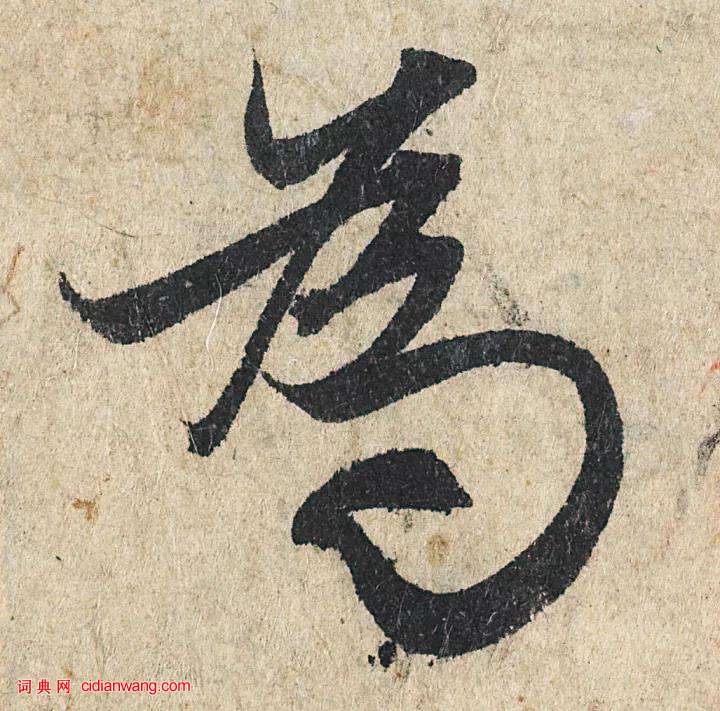 為
词典网 cidianwang.com